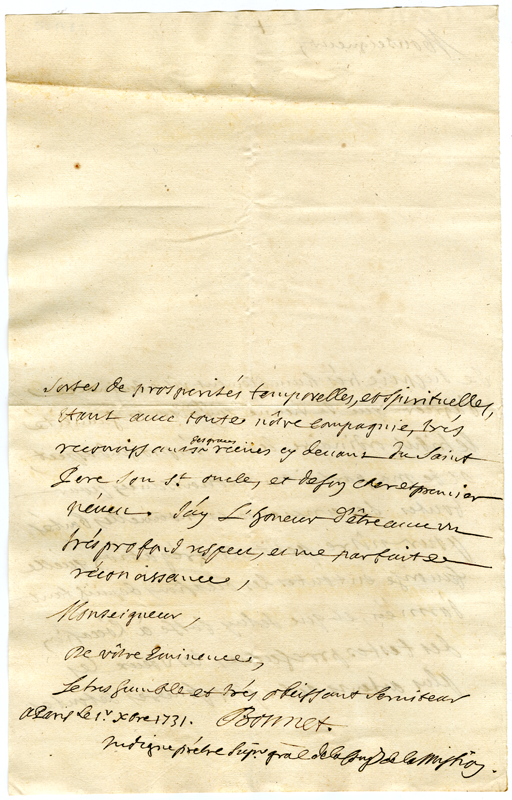 sortes de prosperités temporelles, et spirituelles,
étant avec toute nôtre Compagnie, trés
reconoissante des graces receües cy devant du Saint
Pere son St. oncle, et de son cher et premier
néveu. J'ay L'honeur d'être avec un
trés profond respect, et une parfaite
réconoissance,
Monseigneur,
De vôtre Eminence,
Le tres humble et trés obeissant Serviteur
a Paris le 1r. Xbre 1731. Bonnet.
indigne prêtre Supr. gñal de la Congon de la Mission.